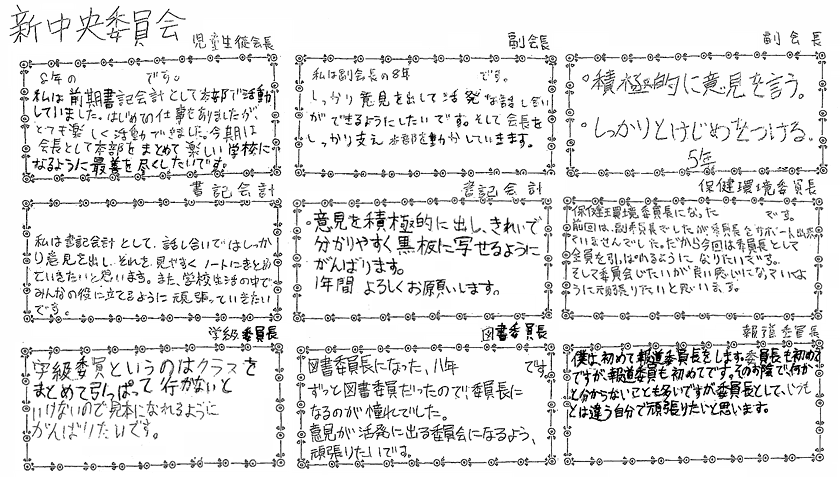 新中央委員会
児童生徒会長
8年の です。
私は前期書記会計として本部で活動
していました。はじめての仕事もありましたが、
とても楽しく活動できました。今期は
会長として本部をまとめて楽しい学校に
なるように最善を尽くしたいです。
副会長
私は副会長の8年 です。
しっかり意見を出して活発な話し合い
ができるようにしたいです。そして会長を
しっかり支え本部を動かしていきます。
副会長
・積極的に意見を言う。
・しっかりとけじめをつける。
5年
書記会計
私は書記会計として、話し合いではしっか
り意見を出し、それを、見やすくノートにまとめ
ていきたいと思います。また、学校生活の中で
みんなの役に立てるように頑張っていきたい
です。
書記会計
・意見を積極的に出し、きれいで
分かりやすく黒板に写せるように
がんばります。
1年間よろしくお願いします。
保健環境委員長
保健環境委員長になった です。
前回は、副委員長でしたが委員長をサポート出来
ていませんでした。だから今回は委員長として
全員を引っぱれるようになりたいです。
そして委員会じたいが良い感じになっていくよ
うに頑張りたいと思います。
学級委員長
学級委員というのはクラスを
まとめて引っぱって行かないと
いけないので見本になれるように
がんばりたいです。
図書委員長
図書委員長になった、八年 です。
ずっと図書委員だったので委員長に
なるのが憧れでした。
意見が活発に出る委員会になるよう、
頑張りたいです。
報道委員長
僕は、初めて報道委員長をします。委員長も初めて
ですが、報道委員も初めてです。そのお陰で何か
と分からないことも多いですが委員長として、いつも
とは違う自分で頑張りたいと思います。